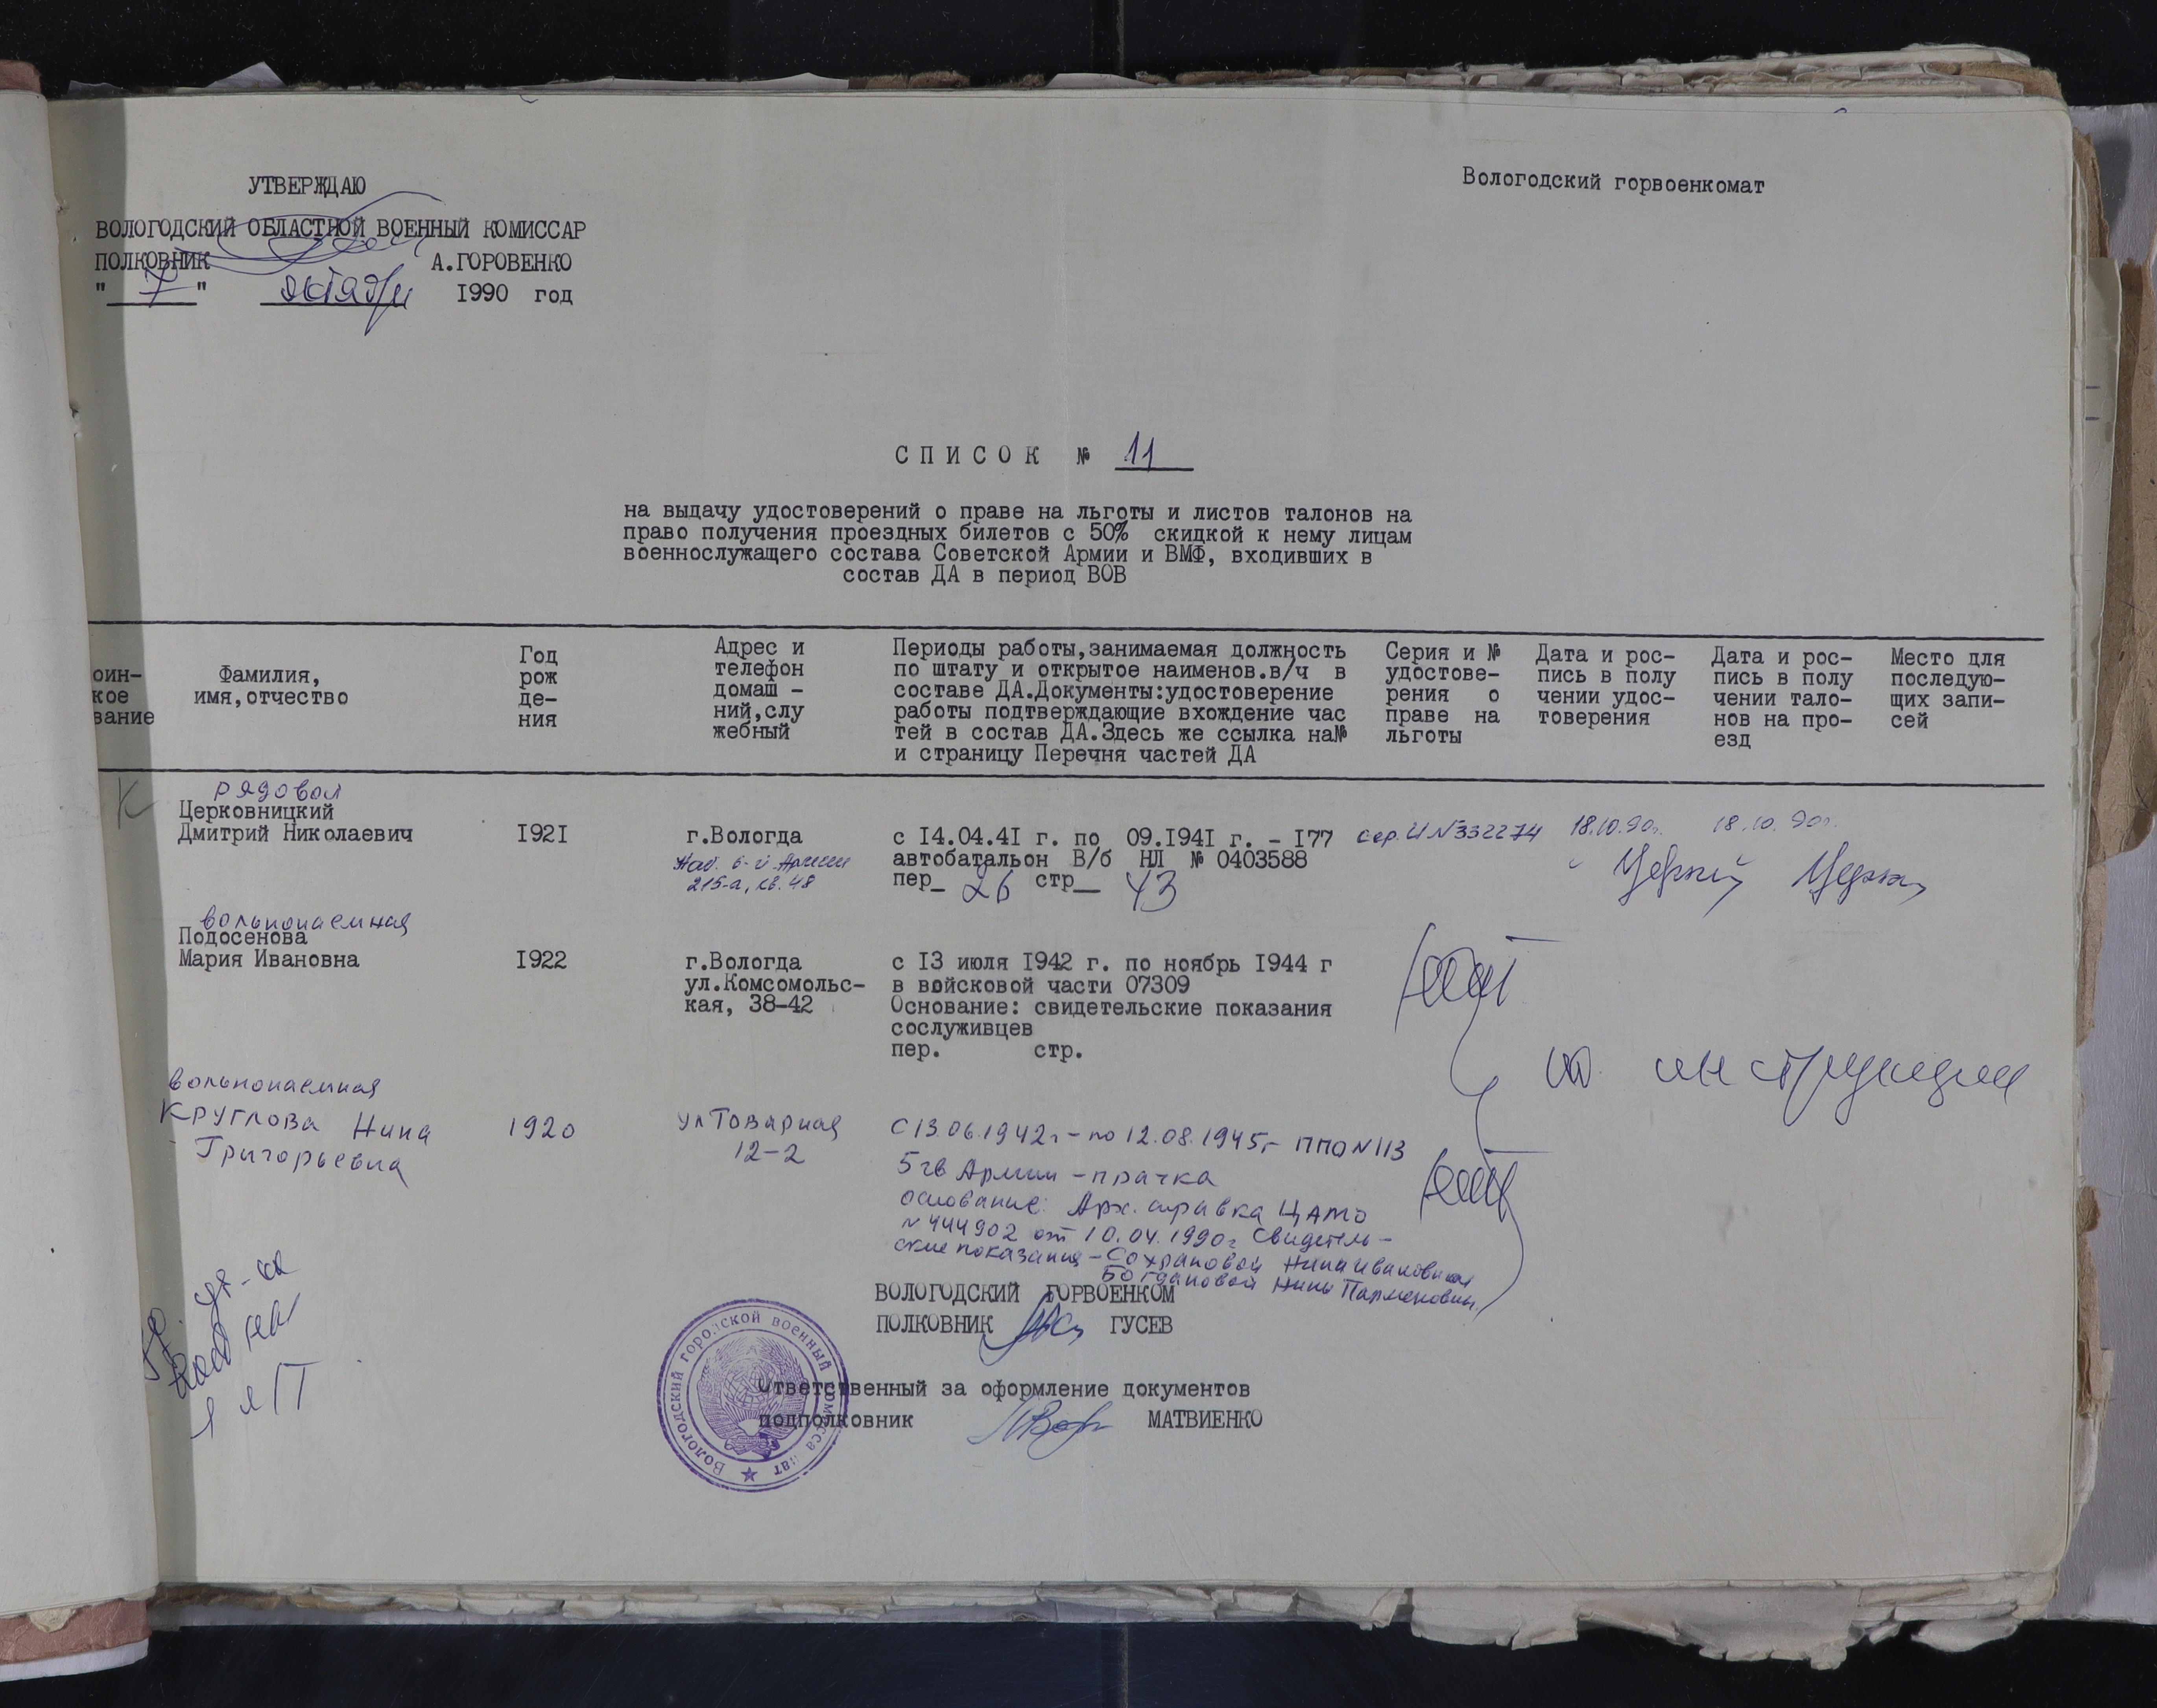 УТВЕРЖДАЮ
ВОЛОГОДСКИЙ ОБЛАСТНОЙ ВОЕННЫЙ КОМИССАР
ПОЛКОВНИК А.ГОРОВЕНКО
" 7 " октября 1990 год
Вологодский горвоенкомат
СПИСОК № 11
на выдачу удостоверений о праве на льготы и листов талонов на
право получения проездных билетов с 50% скидкой к нему лицам
военнослужащего состава Советской Армии и ВМФ, входивших в
состав ДА в период ВОВ
оин-
кое
вание
Фамилия,
имя,отчество
Год
рож
де-
ния
Адрес и
телефон
домаш -
ний,слу
жебный
Периоды работы,занимаемая должность
по штату и открытое наименов.в/ч в
составе ДА.Документы:удостоверение
работы подтверждающие вхождение час
тей в состав ДА.Здесь же ссылка на№
и страницу Перечня частей ДА
Серия и №
удостове-
рения о
праве на
льготы
Дата и рос-
пись в полу
чении удос-
товерения
Дата и рос-
пись в полу
чении тало-
нов на про-
езд
Место для
последую-
щих запи-
сей
К
рядовой
Церковницкий
Дмитрий Николаевич
1921
г.Вологда
Наб. 6-й Армии
215-а, кв. 48
с 14.04.41 г. по 09.1941 г. - 177
автобатальон В/б НЛ № 0403588
пер_ 26 стр_ 43
сер. И №332274
18.10.90г.
18.10.90г.
вольнонаемная
Подосенова
Мария Ивановна
1922
г.Вологда
ул.Комсомольс-
кая, 38-42
с 13 июля 1942 г. по ноябрь 1944 г
в войсковой части 07309
Основание: свидетельские показания
сослуживцев
пер. стр.
по инструкции
вольнонаемная
Круглова Нина
Григорьевна
1920
ул Товарная
12-2
С 13.06.1942г - по 12.08.1945г ППО N 113
5 гв Армии - прачка
основание: Арх. справка ЦАМО
N 444902 от 10.04.1990г Свидетель-
ские показания - Сохрановой Нина Ивановна
Богдановой Нины Парменовны
ВОЛОГОДСКИЙ ГОРВОЕНКОМ
ПОЛКОВНИК ГУСЕВ
Ответственный за оформление документов
подполковник МАТВИЕНКО
Вологодский городской военный комиссариат